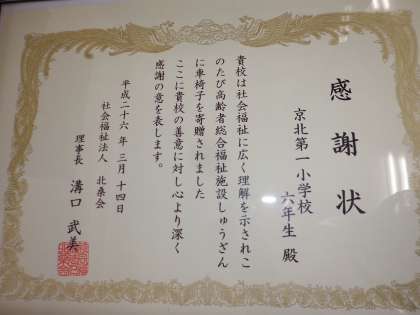 感謝状
京北第一小学校
六年生 殿
貴校は社会福祉に広く理解を示されこ
のたび高齢者総合福祉施設しゅうざん
に車椅子を寄贈されました
ここに貴校の善意に対し心より深く
感謝の意を表します。
平成二十六年 三月 十四日
社会福祉法人 北桑会
理事長 溝口 武美